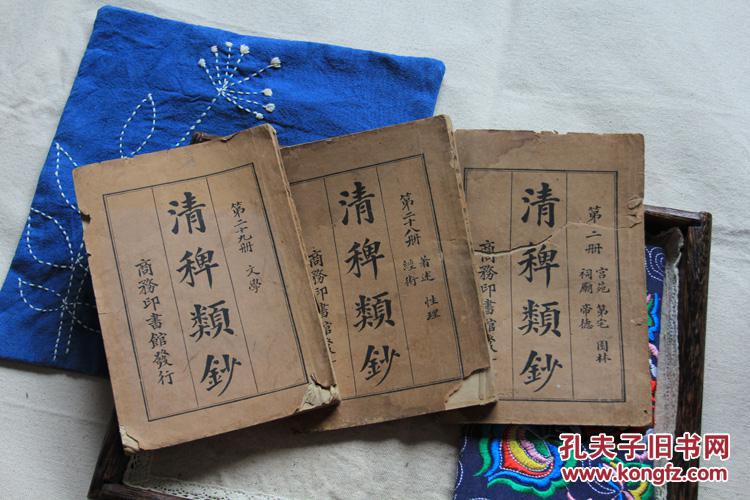 清稗類鈔
第二十九册 文學
商務印書館發行
清稗類鈔
第二十八册 著述 性理
經術
商務印書館發
清稗類鈔
第二册 宮苑 第宅 園林
祠廟 帝德
商務
孔夫子旧书网
www.kongfz.com